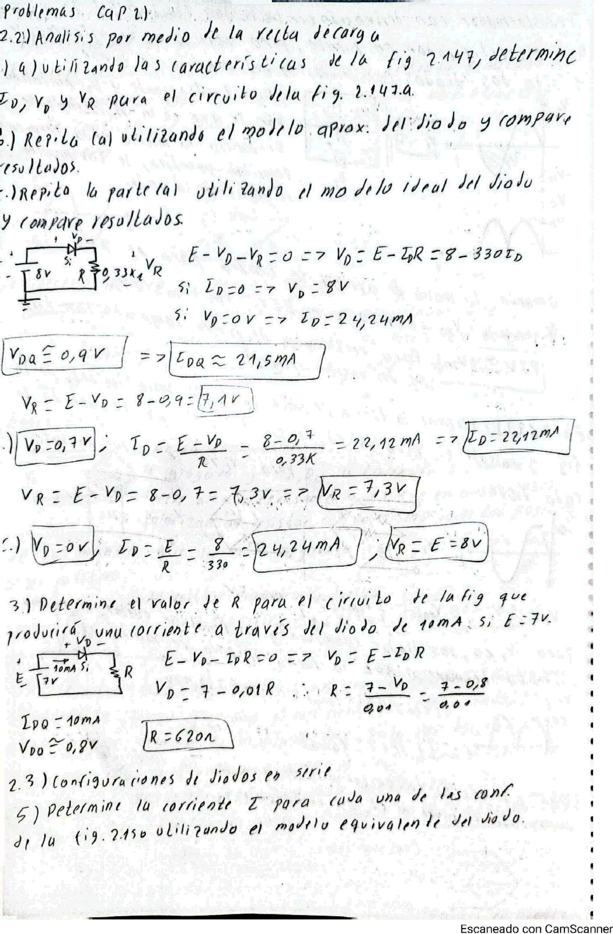 Problemas Cap 2.)
2.2.) Analisis por medio de la recta decarga
) a) utilizando las características de la fig 2.147, determine
ID, VD y VR para el circuito dela fig. 2.147.a.
b.) Repita (a) utilizando el modelo aprox. del diodo y compare
resultados.
c.) Repita la parte (a) utilizando el modelo ideal del diodo
y compare resultados.
+ VD -
Si
+
8V
-
R
0,33KΩ
+
VR
-
E-VD-VR=0 => VD=E-IDR=8-330ID
Si ID=0 => VD=8V
Si VD=0V => ID=24,24mA
VDQ ≅ 0,9V => IDQ ≈ 21,5mA
VR = E-VD = 8-0,9= 7,1V
.) VD=0,7V ; ID = E-VD/R = 8-0,7/0,33K = 22,12mA => ID=22,12mA
VR = E-VD = 8-0,7= 7,3V => VR=7,3V
c.) VD=0V ; ID = E/R = 8/330 = 24,24mA , VR=E=8V
3.) Determine el valor de R para el circuito de la fig que
producirá una corriente a través del diodo de 10mA si E=7V.
+ VD -
10mA Si
+
E
-
7V
R
E-VD-IDR=0 => VD=E-IDR
VD=7-0,01R ∴ R = 7-VD/0,01 = 7-0,8/0,01
IDQ=10mA
VDQ≅0,8V
R=620Ω
2.3.) Configuraciones de diodos en serie
5) Determine la corriente I para cada una de las conf.
de la fig. 2.150 utilizando el modelo equivalente del diodo.
Escaneado con CamScanner